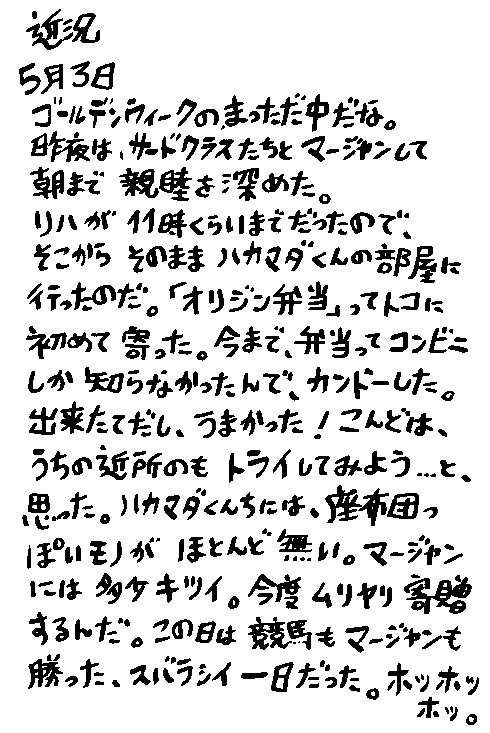 近況
5月3日
ゴールデンウィークのまっただ中だな。
昨夜は、サードクラスたちと マージャンして
朝まで 親睦を深めた。
リハが 11時くらいまでだったので、
そこから そのまま ハカマダくんの部屋に
行ったのだ。「オリジン弁当」ってトコに
初めて 寄った。今まで、弁当ってコンビニ
しか 知らなかったんで、カンドーした。
出来たてだし、うまかった！こんどは、
うちの近所のも トライしてみよう…と、
思った。ハカマダくんちには、座布団っ
ぽいモノが ほとんど 無い。マージャン
には 多少 キツイ。今度 ムリヤリ 寄贈
するんだ。この日は 競馬も マージャンも
勝った、スバラシイ 一日だった。ホッホッ
ホッ。